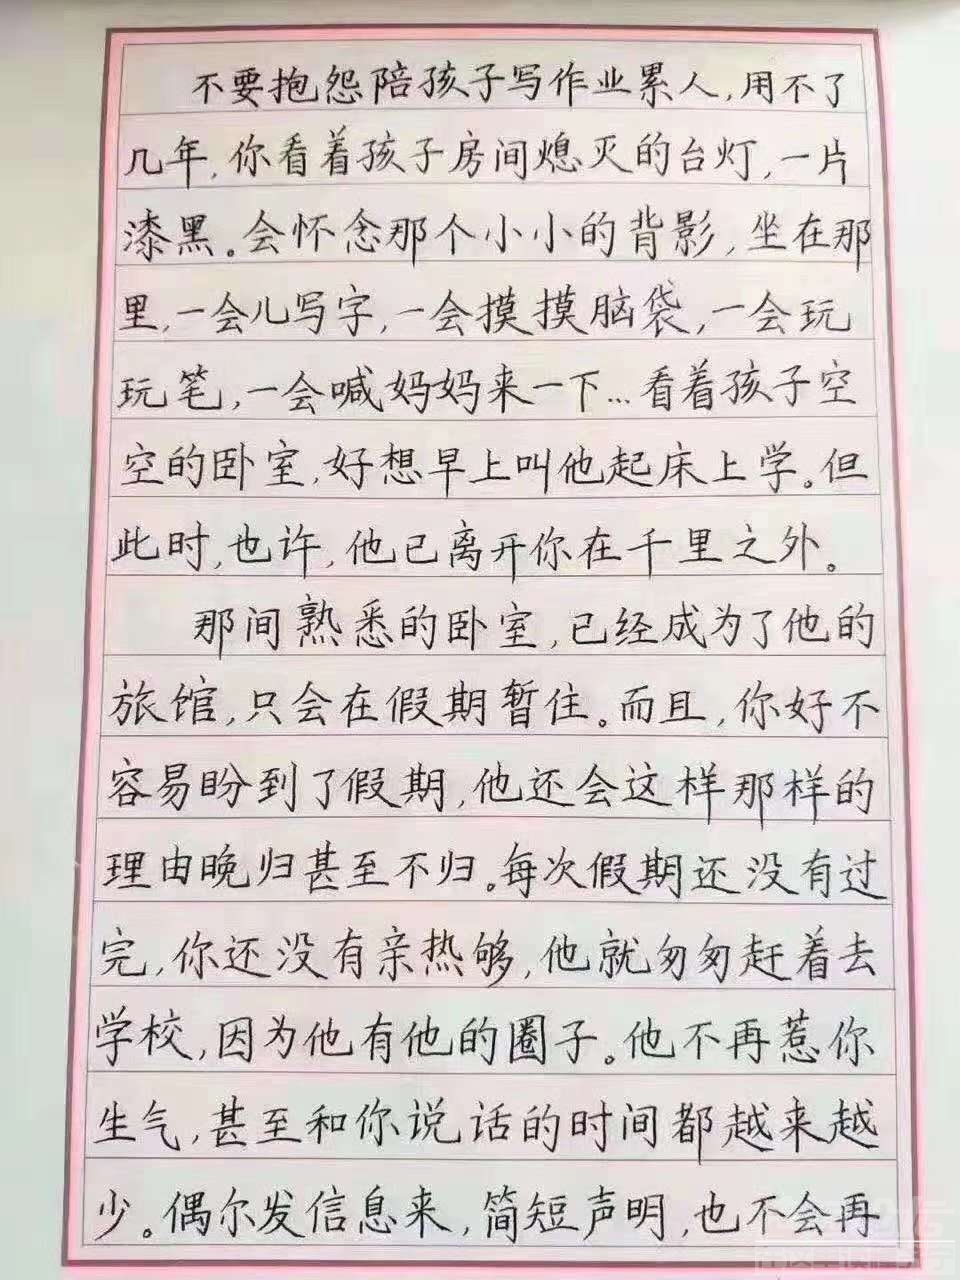 不要抱怨陪孩子写作业累人,用不了
几年,你看着孩子房间熄灭的台灯,一片
漆黑。会怀念那个小小的背影,坐在那
里,一会儿写字,一会摸摸脑袋,一会玩
玩笔,一会喊妈妈来一下…看着孩子空
空的卧室,好想早上叫他起床上学。但
此时,也许,他已离开你在千里之外。
那间熟悉的卧室,已经成为了他的
旅馆,只会在假期暂住。而且,你好不
容易盼到了假期,他还会这样那样的
理由晚归甚至不归。每次假期还没有过
完,你还没有亲热够,他就匆匆赶着去
学校,因为他有他的圈子。他不再惹你
生气,甚至和你说话的时间都越来越
少。偶尔发信息来,简短声明,也不会再